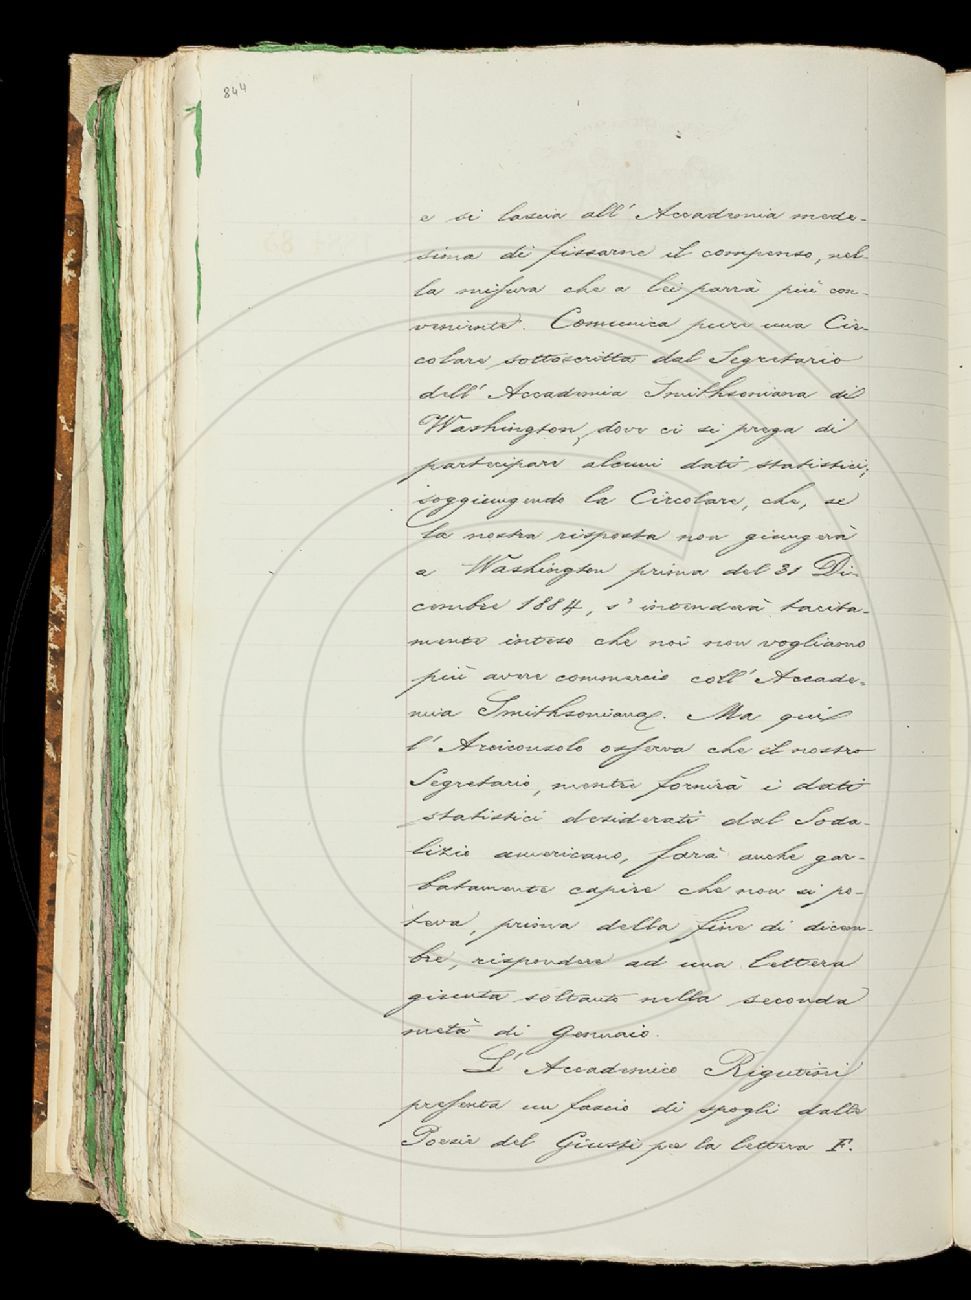 844
e si lascia all' Accademia mede-
sima di fissarne il compenso, nel-
la misura che a lei parrà più con-
veniente. Comunica pure una Cir-
colare sottoscritta dal Segretario
dell' Accademia Smithsoniana di
Washington, dove ci si prega di
partecipare alcuni dati statistici;
soggiungendo la Circolare, che, se
la nostra risposta non giungerà
a Washington prima del 31 Di-
cembre 1884, s' intenderà tacita-
mente inteso che noi non vogliamo
più avere commercio coll' Accade-
mia Smithsoniana. Ma qui
l' Arciconsolo osserva che il nostro
Segretario, mentre fornirà i dati
statistici desiderati dal Soda-
lizio americano, farà anche gar-
batamente capire che non si po-
teva, prima della fine di dicem-
bre, rispondere ad una lettera
giunta soltanto nella seconda
metà di Gennaio.
L' Accademico Rigutini
presenta un fascio di spogli dalle
Poesie del Giusti per la lettera F.